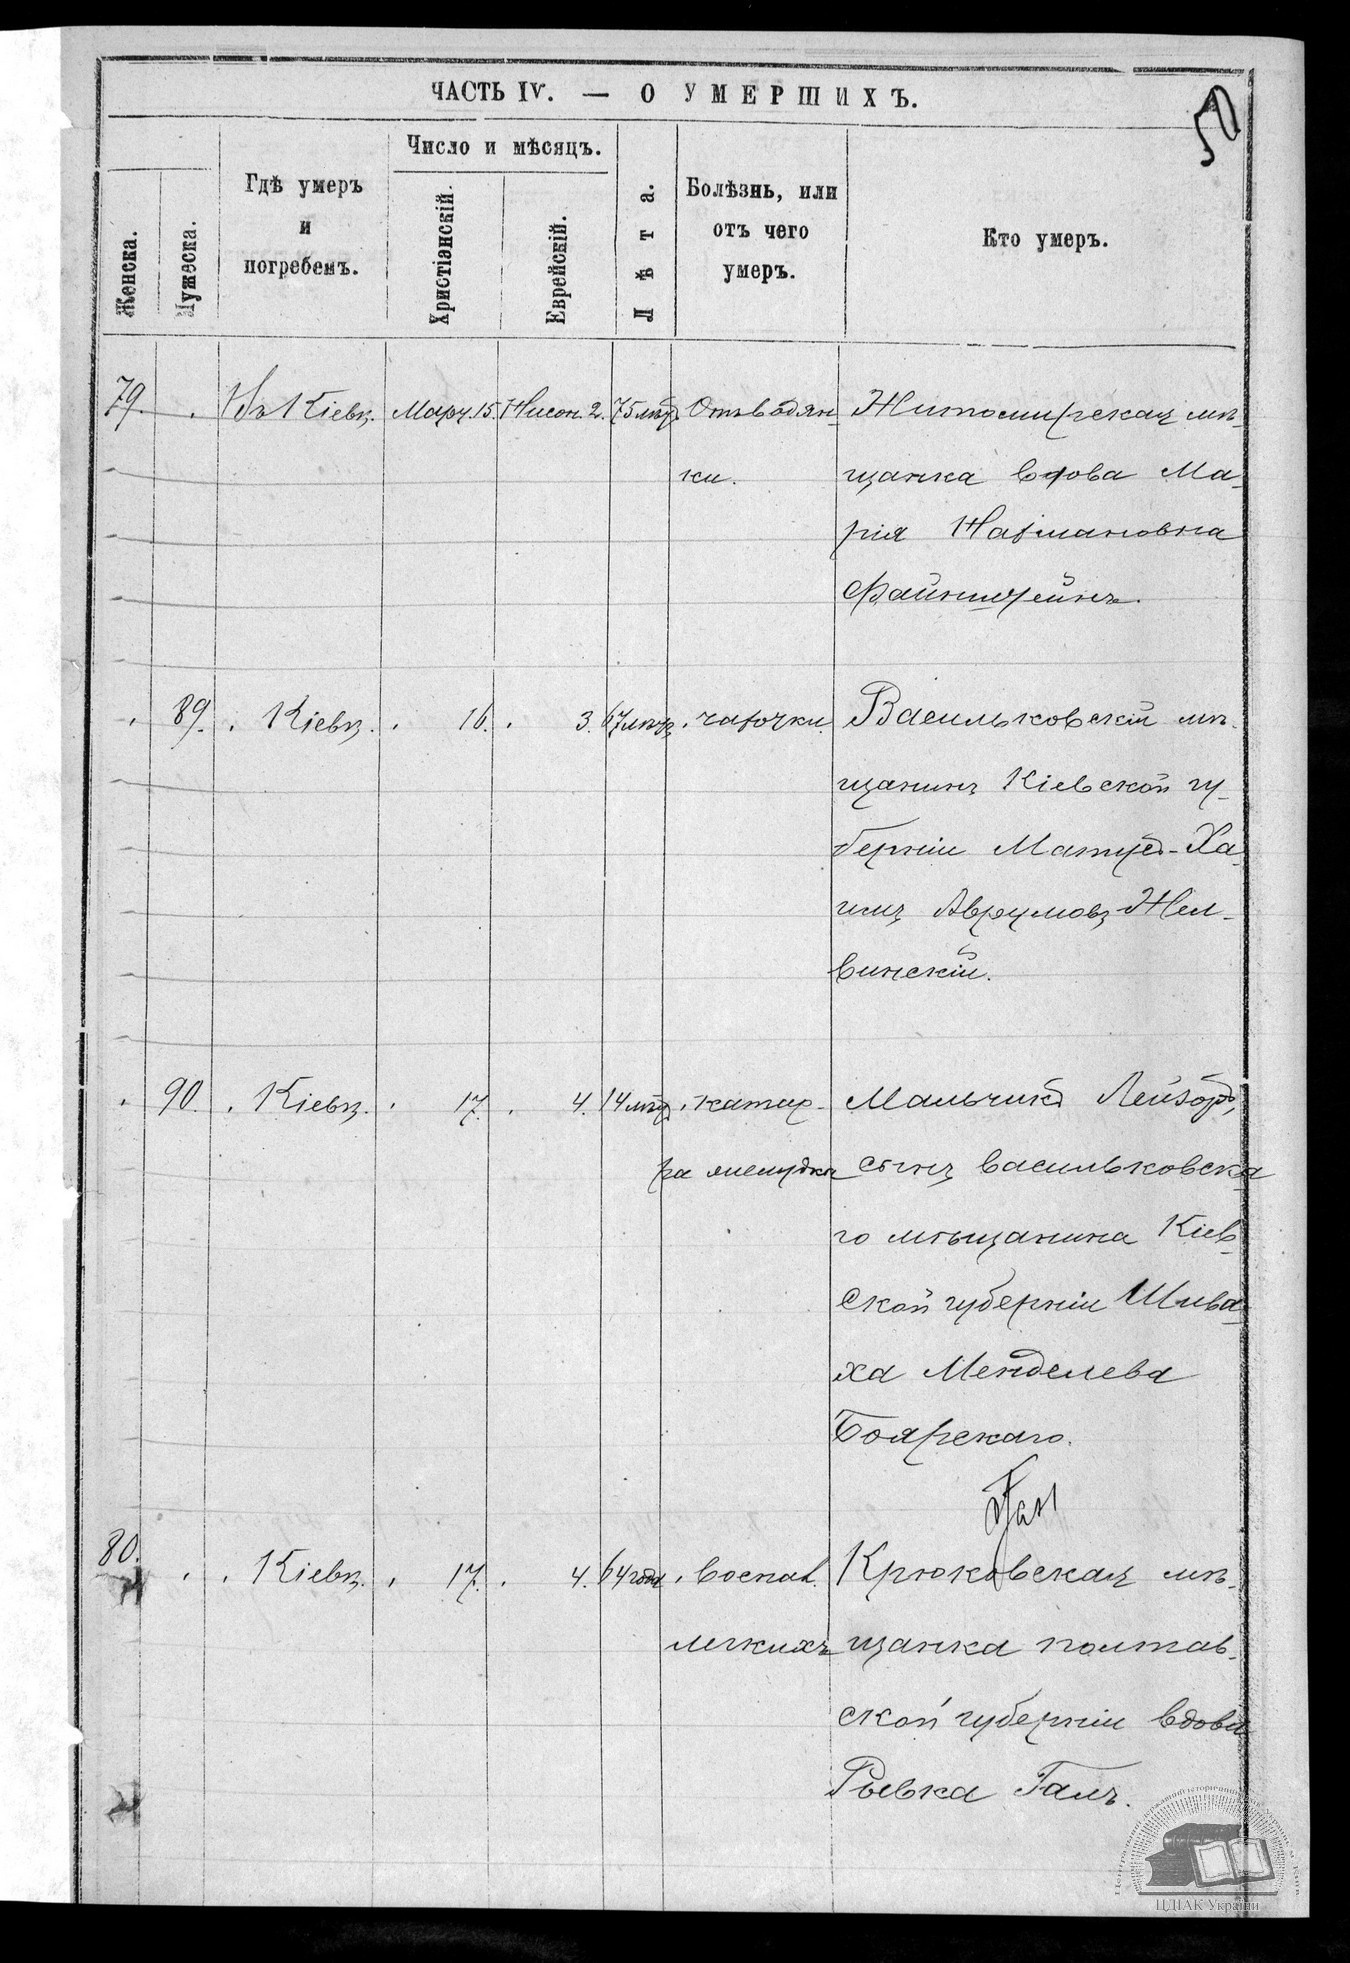 ЧАСТЬ IV. — О УМЕРШИХЪ.
50
Женска.
Мужеска.
Гдѣ умеръ
и
погребенъ.
Число и мѣсяцъ.
Христіянскій.
Еврейскій.
Лѣта.
Болѣзнь, или
отъ чего
умеръ.
Кто умеръ.
79. Въ Кіевѣ. Март. 15. Нисон. 2. 75 лѣтъ Отъ водян-
ки.
Житомирская мѣ-
щанка вдова Ма-
рія Нахмановна
Файнштейнъ.
89. Кіевѣ. 16. 3. 67 лѣтъ чахотки.
Васильковскій мѣ-
щанинъ Кіевской гу-
берніи Матусъ-Ха-
имъ Аврумовъ Жел-
винскій.
90. Кіевѣ. 17. 4. 14 лѣтъ катар-
ра желудка
Мальчикъ Лейзоръ,
сынъ васильковска-
го мѣщанина Кіев-
ской губерніи Шлва-
ха Менделева
Боярскаго.
Гал
80. Кіевѣ. 17. 4. 64 года воспал.
легкихъ
Крюковская мѣ-
щанка полтав-
ской губерніи вдова
Рывка Галъ.
ЦДІАК України